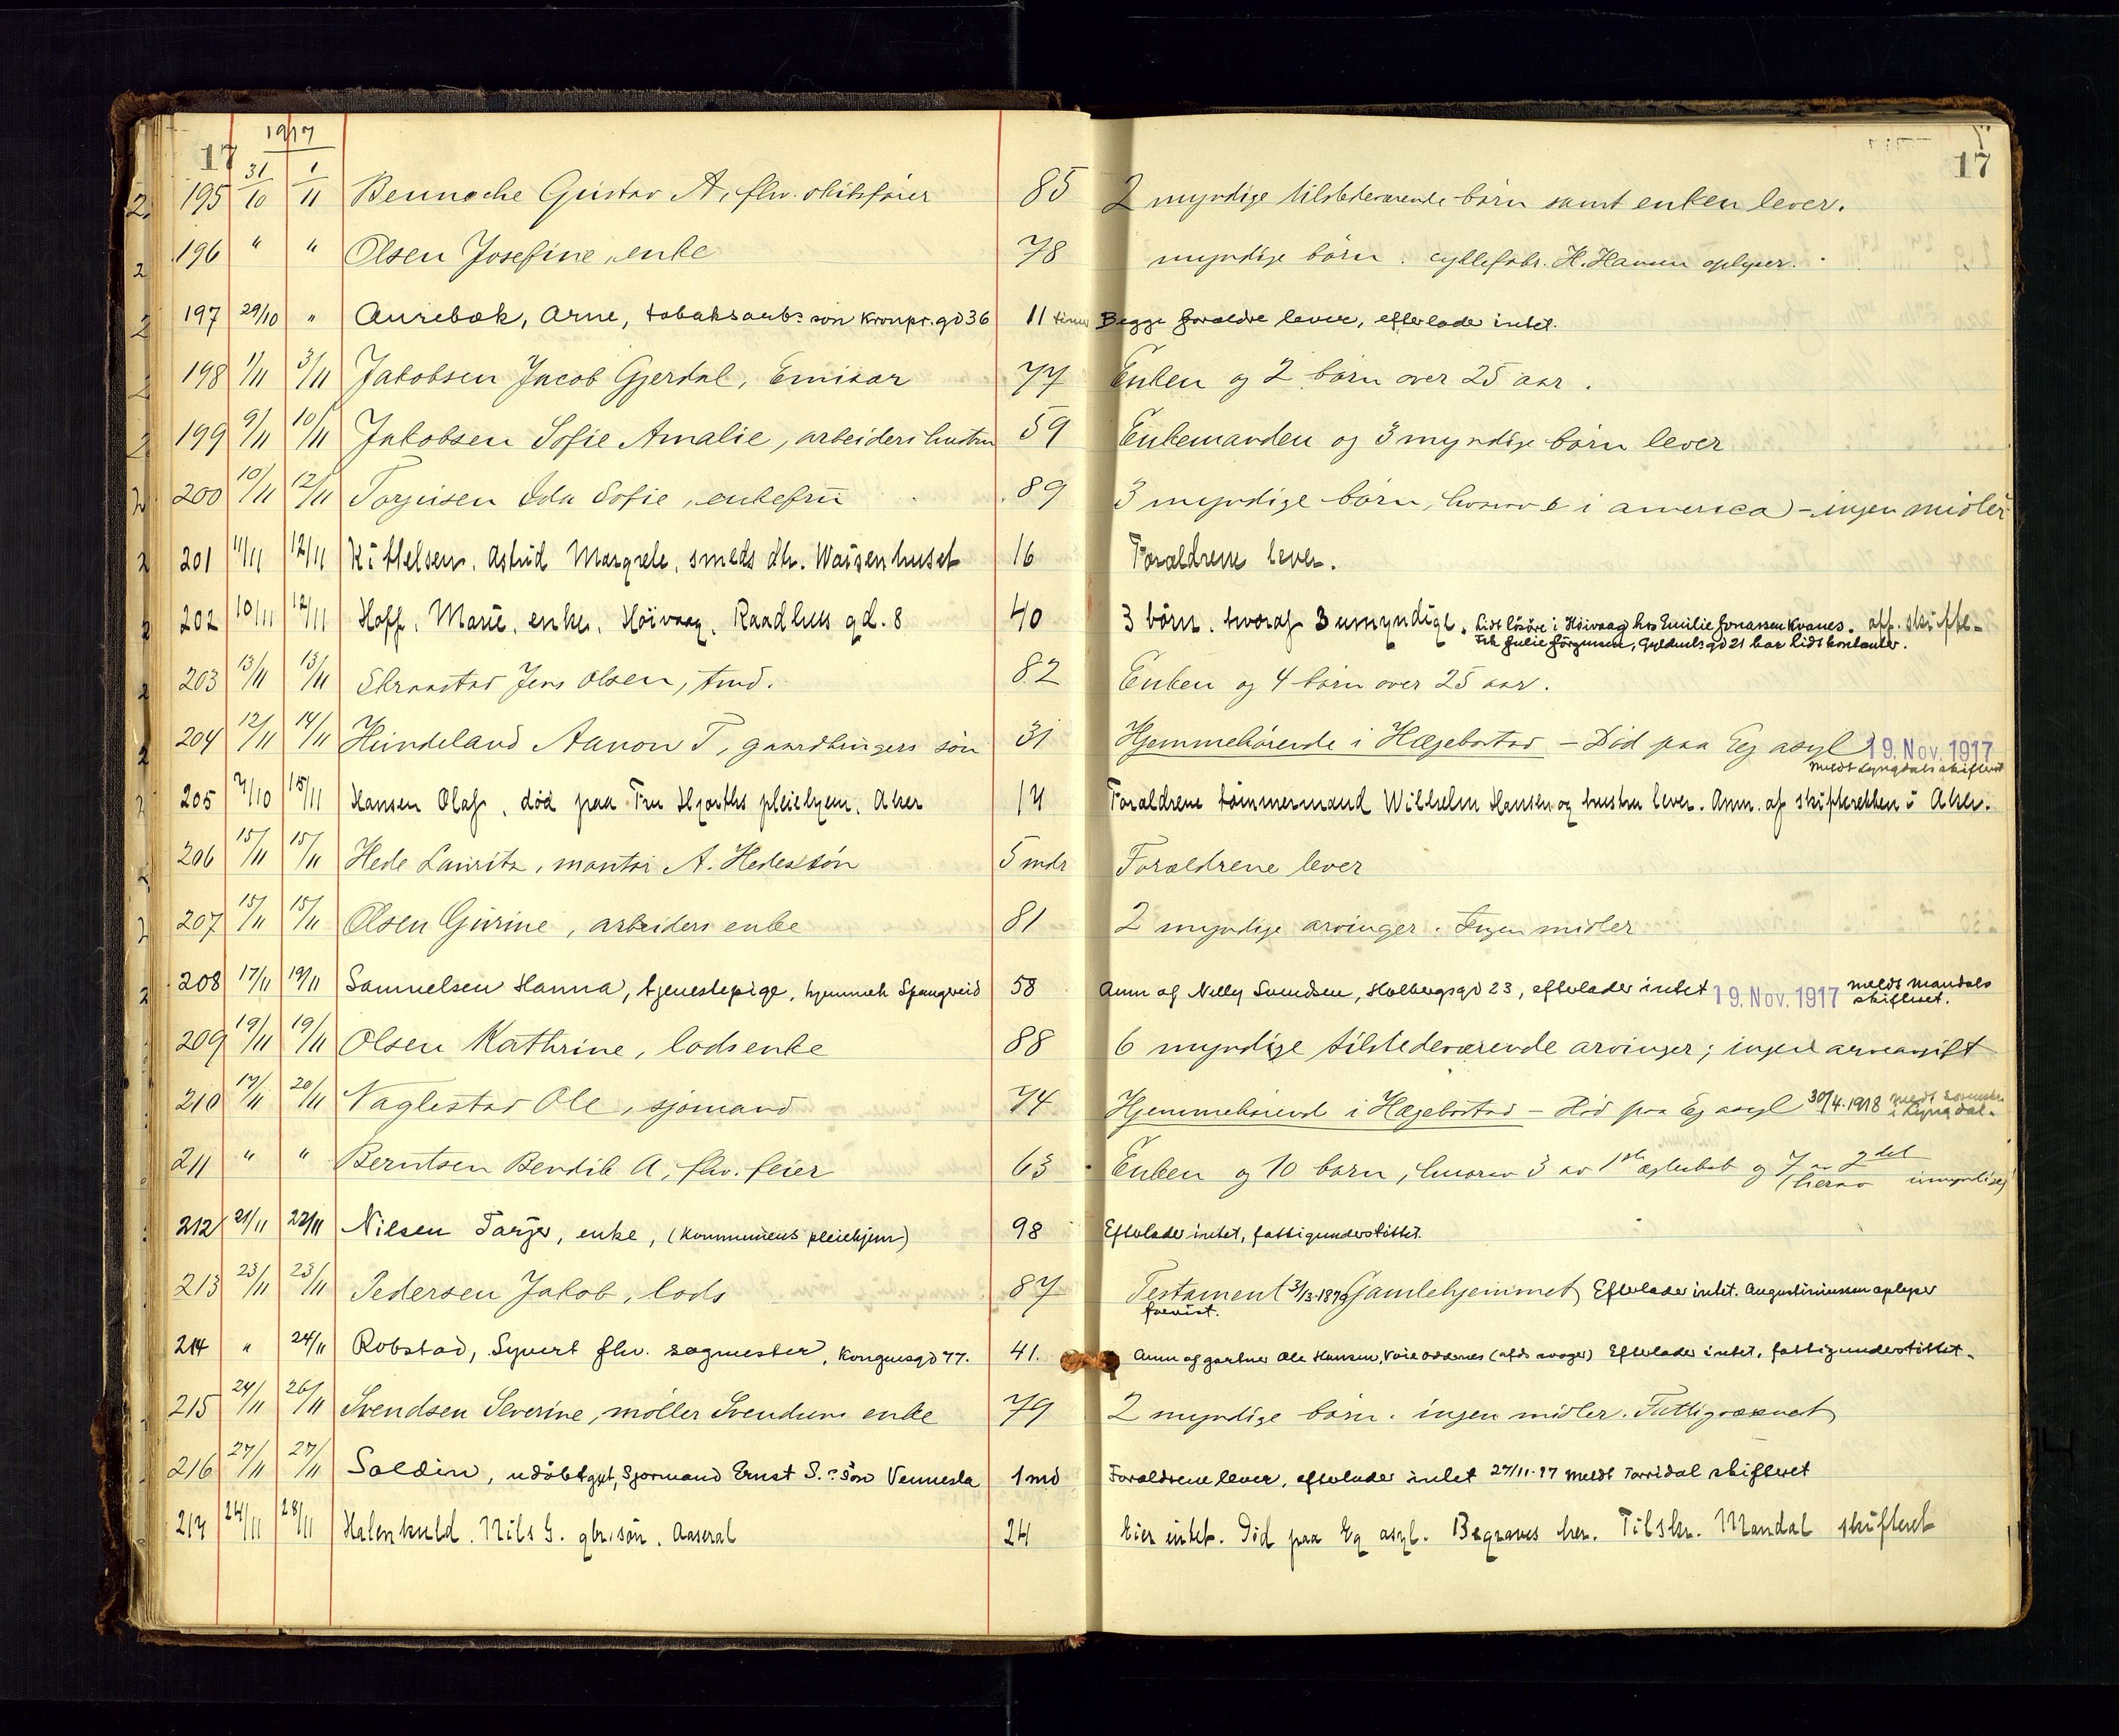 1917
17 17
195 31/10 1/11 Bennoche Gustav A, fhv. skibsfører 85 2 myndige tilstedeværende børn samt enken lever.
196 " " Olsen Josefine, enke 78 myndige børn. H. Hansen oplyser.
197 29/10 " Aurebæk, Arne, tobaksarbs søn Kronpr.gd 36 11 timer Begge forældre lever, efterlader intet.
198 1/11 3/11 Jakobsen Jacob Gjerdal, Emisær 77 Enken og 2 børn over 25 aar.
199 9/11 10/11 Jakobsen Sofie Amalie, arbeiders hustru 59 Enkemanden og 3 myndige børn lever
200 10/11 12/11 Torjusen Ida Sofie, enkefru 89 3 myndige børn, hvorav 1 i america) - ingen midler
201 11/11 12/11 Kittelsen, Astrid Margrete, smeds dtr. Waisenhuset 16 Forældrene lever.
202 10/11 12/11 Hoff, Marie, enke, Høivaag, Raadhusgd. 8 40 3 børn, hvoraf 3 umyndige. Lidt løsøre i Høivaag hos Emilie Jonassen Kvanes. off. skifte-
Frk Julie Jörgensen, Gyldenlsgd 21 har lidt kontanter.
203 13/11 13/11 Skraastad Jens Olsen, tmd. 82 Enken og 4 børn over 25 aar.
204 12/11 14/11 Hundeland Aanon T, gaardbrugers søn 31 Hjemmehørende i Hægebostad - Död paa Eg asyl 19. Nov. 1917
meldt Lyngdals skifteret
205 7/10 15/11 Hansen Olaf, død paa Fru Hjorths pleiehjem, Aker 14 Forældrene tømmermand Wilhelm Hansen og hustru lever. Anm. af skifteretten i Aker.
206 15/11 15/11 Hede Lauritz, montør A. Hedes søn 5 mdr Forældrene lever
207 15/11 15/11 Olsen Gurine, arbeiders enke 81 2 myndige arvinger. Ingen midler
208 17/11 19/11 Samuelsen Hanna, tjenestepige, hjemmeh Spangreid 58 Anm af Nelly Svendsen, Holbergsgd 23, efterlader intet 19. Nov. 1917 meldt Mandals
skifteret.
209 19/11 19/11 Olsen Kathrine, lodsenke 88 6 myndige tilstedeværende arvinger; ingen arveavgift
210 17/11 20/11 Naglestad Ole, sjømand 74 Hjemmehørende i Hægebostad - död paa Eg asyl 30/4.1918 meldt sorenskr.
i Lyngdal.
211 " " Berntsen Bendik A, fhv. feier 63 Enken og 10 børn, hvorav 3 av 1ste ægteskab og 7 av 2det
(herav umyndige)
212 21/11 22/11 Nilsen Tarjer, enke, (Kommunens pleiehjem) 98 Efterlader intet, fattigunderstöttet.
213 23/11 23/11 Pedersen Jakob, lods 87 Testament 3/13.1879 Gamlehjemmet Efterlader intet. Augustiniussen oplyser
forevist.
214 " 24/11 Robstad, Syvert fhv. sagmester, Kongensgd 77. 41. Anm af gartner Ole Hansen, Voie Oddernes (afds svoger) Efterlader intet, fattigunderstöttet.
215 24/11 26/11 Svendsen Severine, møller Svendsens enke 79 2 myndige børn. ingen midler. Fattigvæsenet
216 27/11 27/11 Saldin, udöbt gut, Sjømand Ernst S.s søn Vennesla 1 md Forældrene lever, efterlader intet 27/11.17 meldt Torridal skifteret
217 24/11 28/11 Halenkuld. Nils G. gbr.søn. Aaseral 24 Eier intet. Död paa Eg asyl. Begraves her. Tilskr. Mandal skifteret